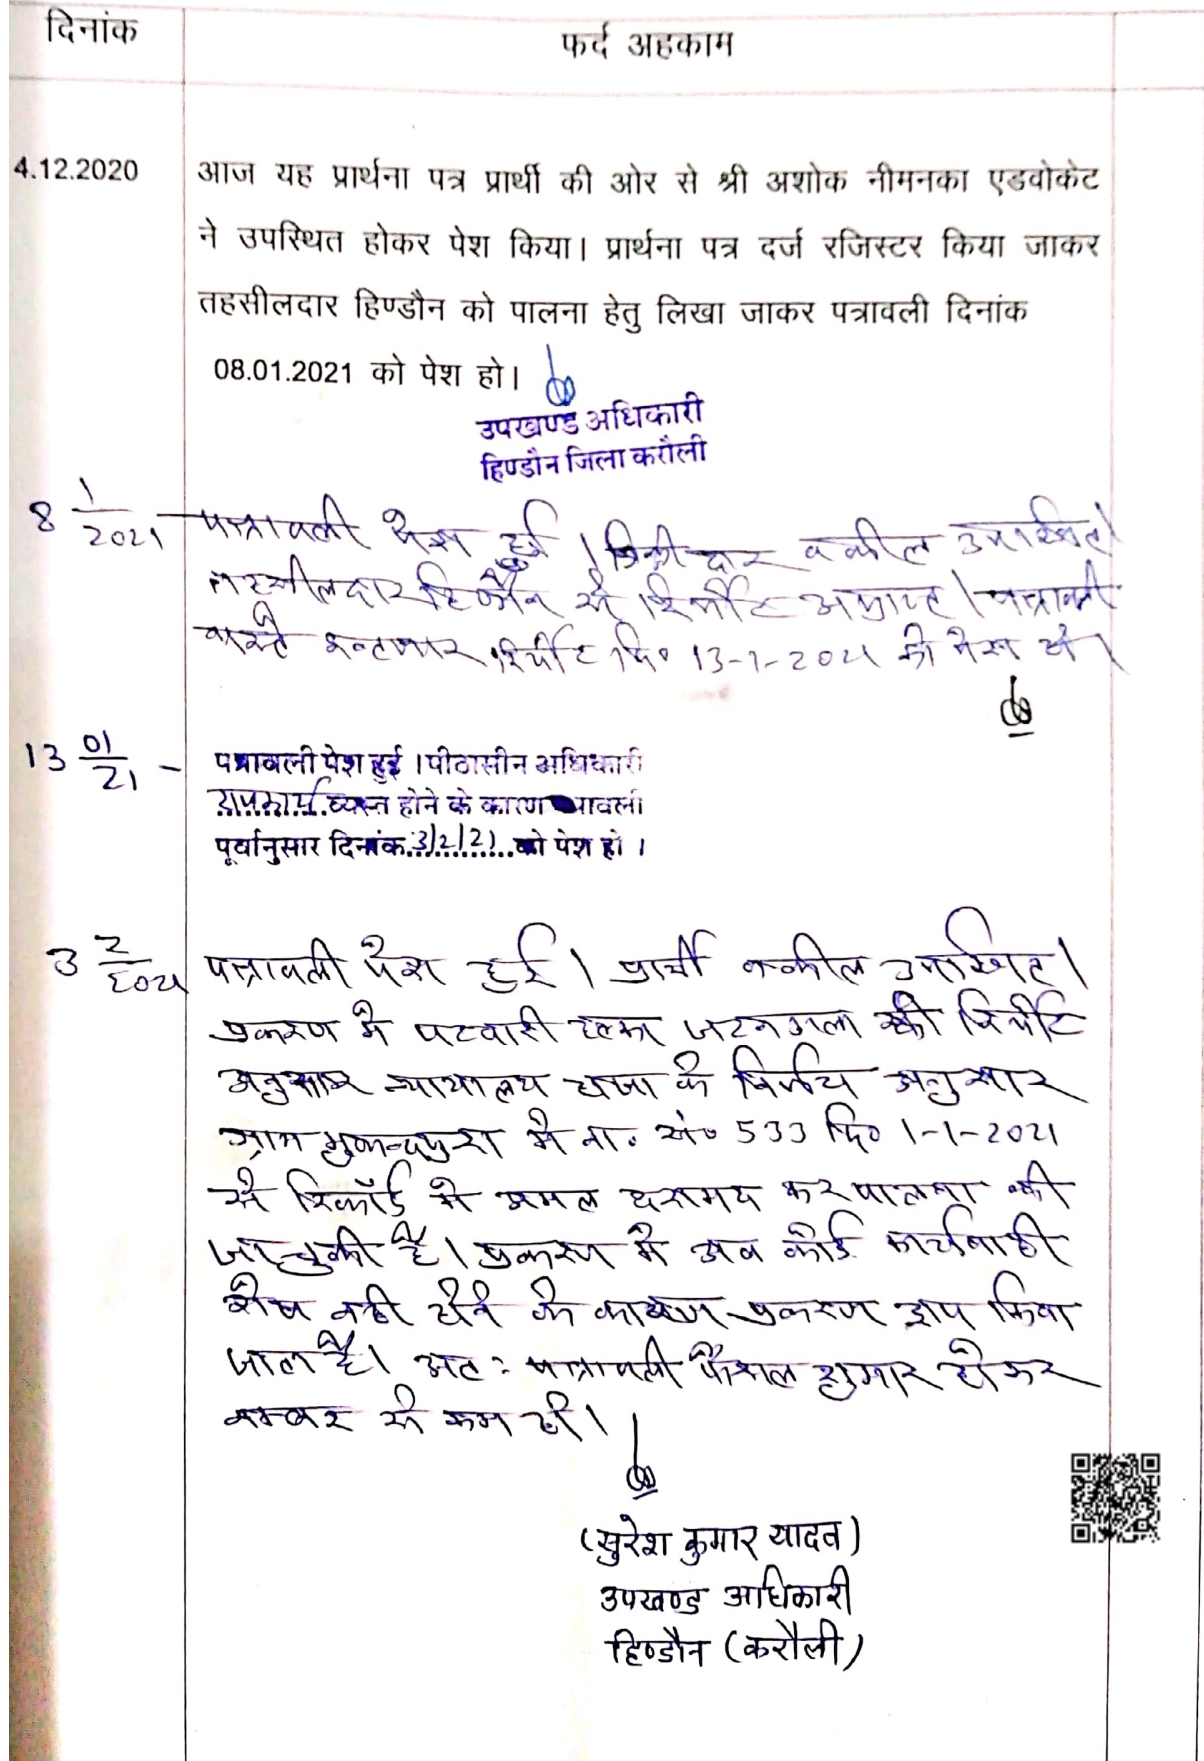 दिनांक
फर्द अहकाम
4.12.2020
आज यह प्रार्थना पत्र प्रार्थी की ओर से श्री अशोक नीमनका एडवोकेट
ने उपस्थित होकर पेश किया। प्रार्थना पत्र दर्ज रजिस्टर किया जाकर
तहसीलदार हिण्डौन को पालना हेतु लिखा जाकर पत्रावली दिनांक
08.01.2021 को पेश हो।
उपखण्ड अधिकारी
हिण्डौन जिला करौली
8 1/2021
पत्रावली पेश हुई। डिक्रीदार वकील उपस्थित।
तहसीलदार हिण्डौन से रिपोर्ट अप्राप्त। पत्रावली
वास्ते इन्तजार रिपोर्ट दि० 13-1-2021 को पेश हो।
13 01/21 -
पत्रावली पेश हुई। पीठासीन अधिकारी
राजकार्य व्यस्त होने के कारण पत्रावली
पूर्वानुसार दिनांक 3/2/21 को पेश हो।
3 2/2021
पत्रावली पेश हुई। प्रार्थी वकील उपस्थित।
प्रकरण मे पटवारी हल्का जटनगला की रिपोर्ट
अनुसार न्यायालय हाजा के निर्णय अनुसार
ग्राम मुकन्दपुरा मे ना. सं० 533 दि० 1-1-2021
से रिकॉर्ड मे अमल दरामद कर पालना की
जा चुकी है। प्रकरण मे अब कोई कार्यवाही
शेष नही होने के कारण प्रकरण ड्राप किया
जाता है। अत: पत्रावली फैसल शुमार होकर
नम्बर से कम हो।
(सुरेश कुमार यादव)
उपखण्ड अधिकारी
हिण्डौन (करौली)